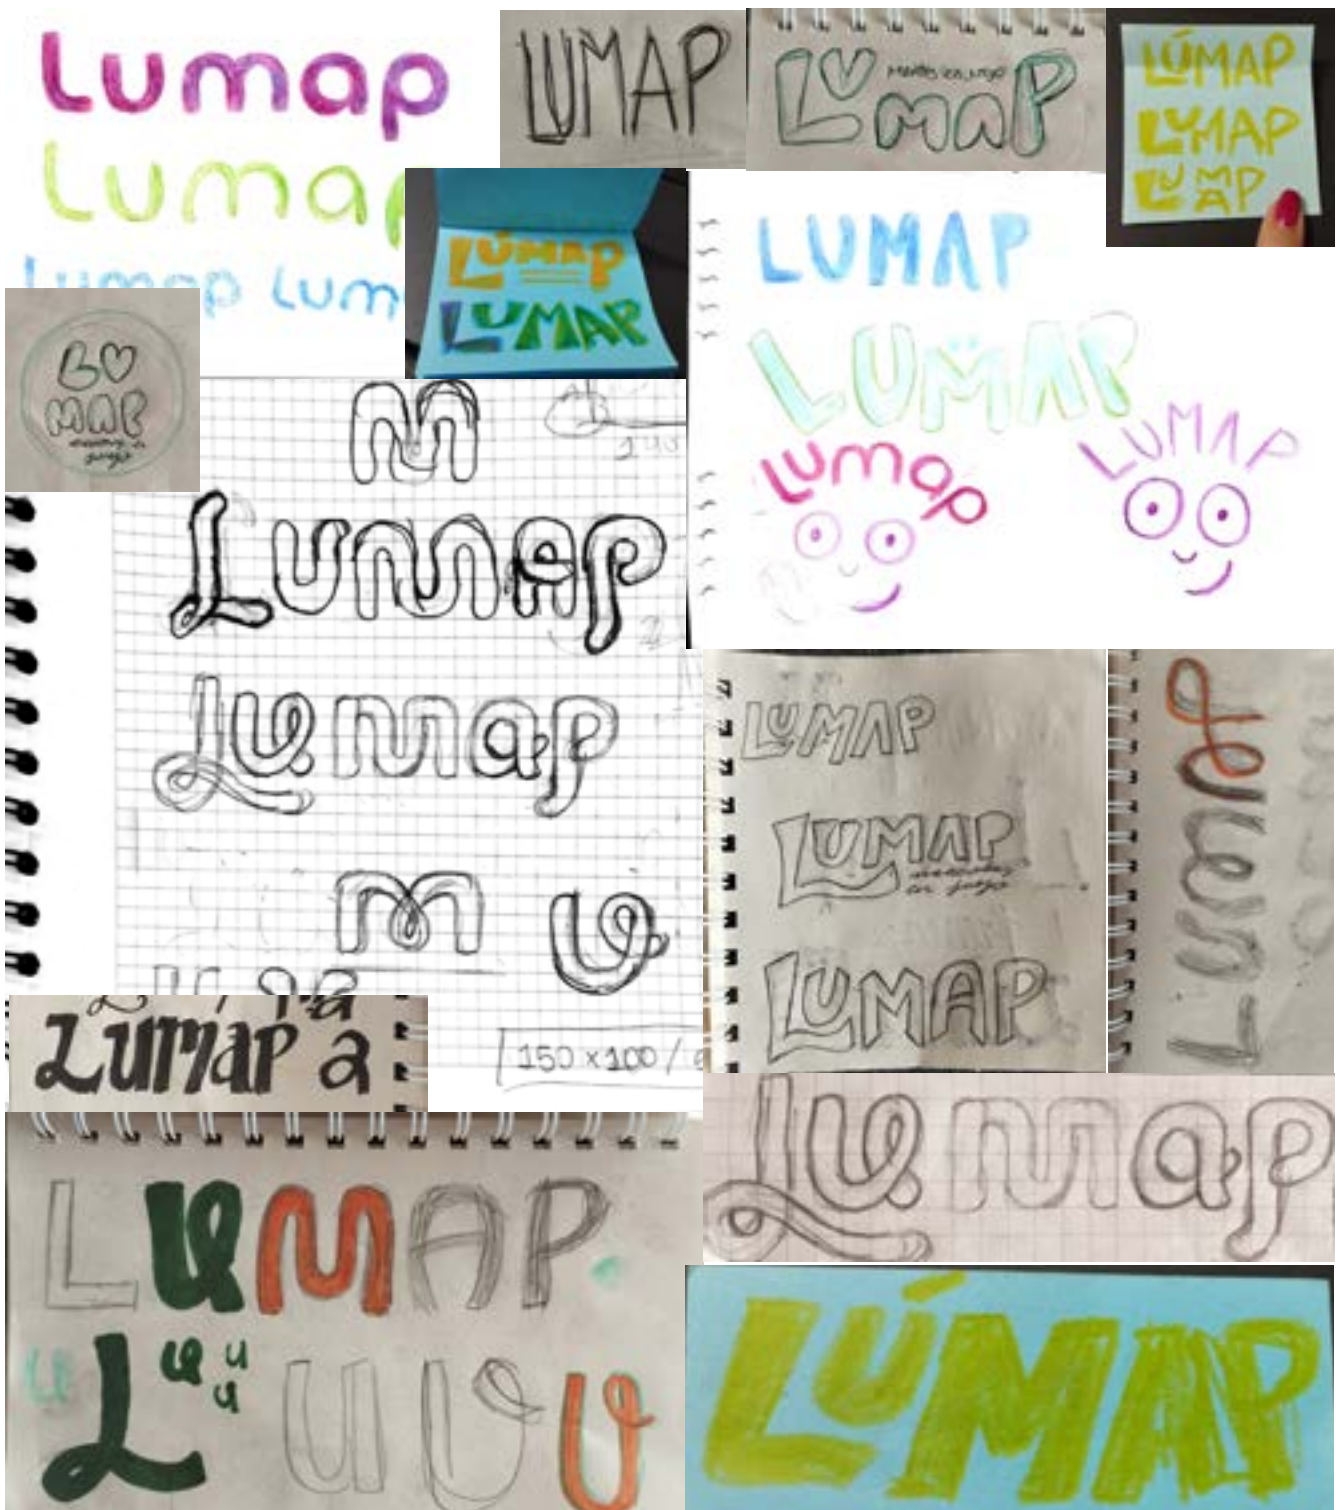 Lumap
Lumap
Lumap Lum
LUMAP
LU
MAP
LÚMAP
LUMAP
LU MAP
LÚMAP
LUMAP
LUMAP
LUMAP
Lumap
LUMAP
L
MAP
en
juego
M
Lumap
Lumap
m
u
150 x 100 /
Lumap a
LUMAP
LUMAP
en juego
LUMAP
Lumap
LUMAP
L u u
u
U U U
LÚMAP